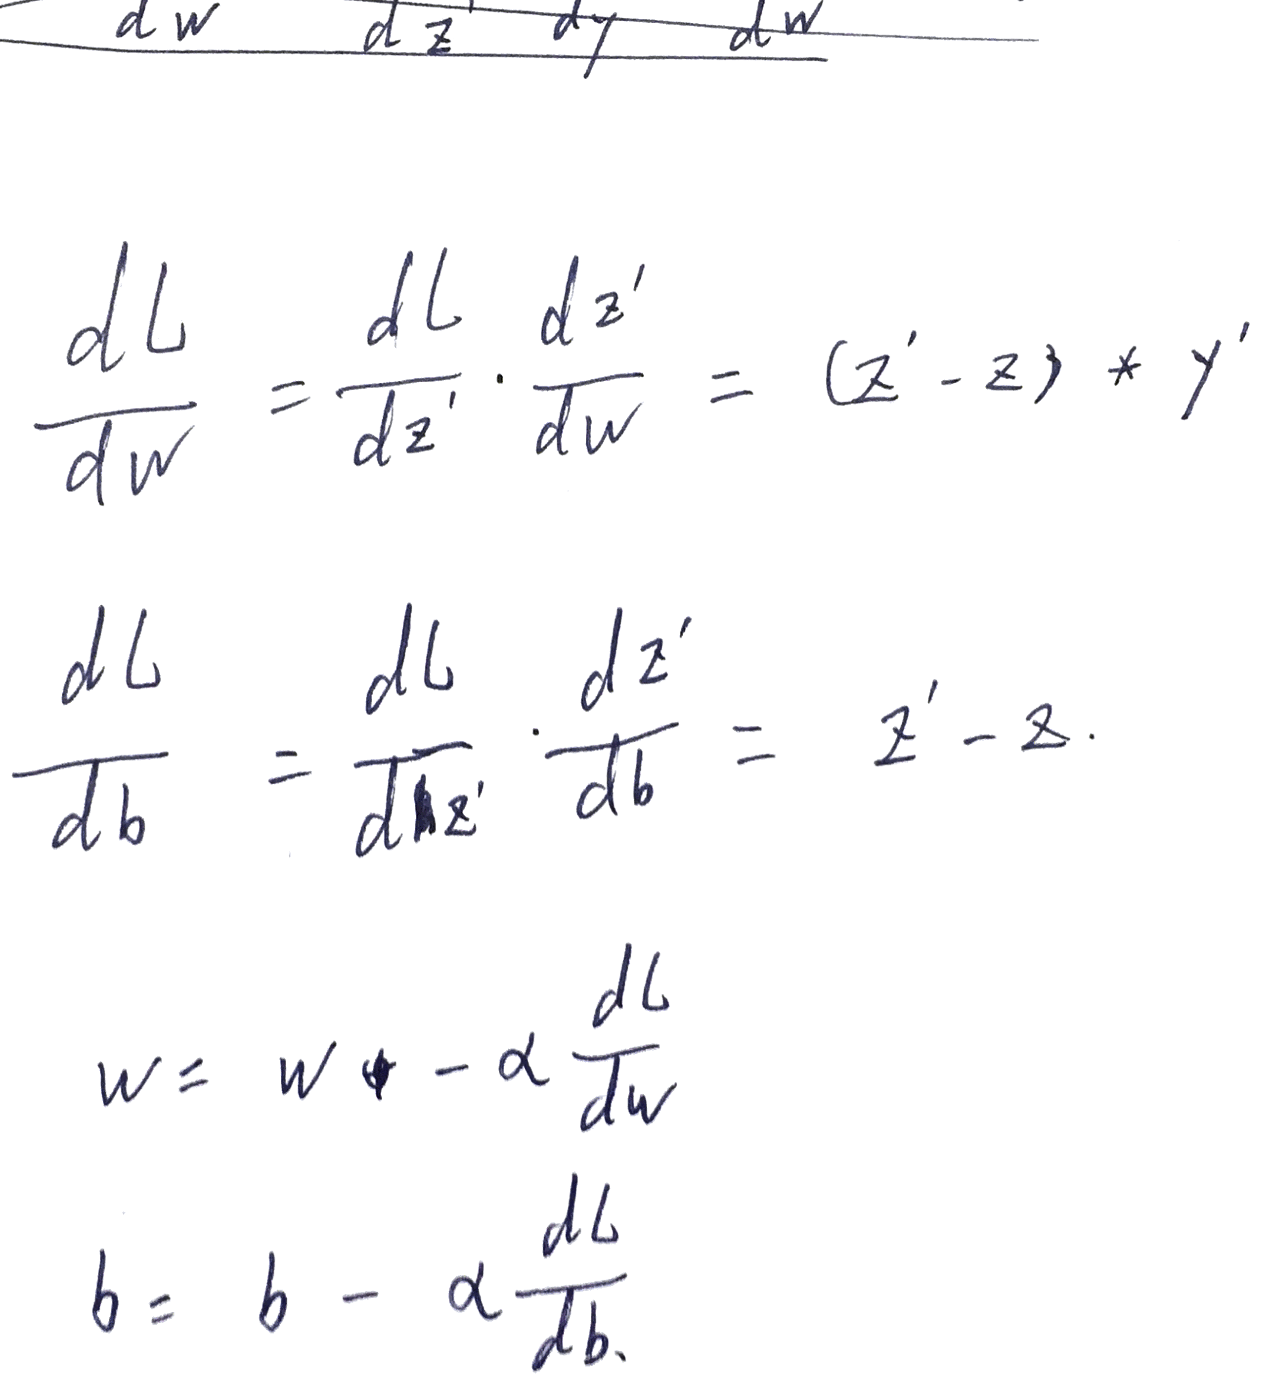 dw dz' dy dw
dL/dw = dL/dz' · dz'/dw = (z' - z) * y'
dL/db = dL/dz' · dz'/db = z' - z.
w = w - α dL/dw
b = b - α dL/db.